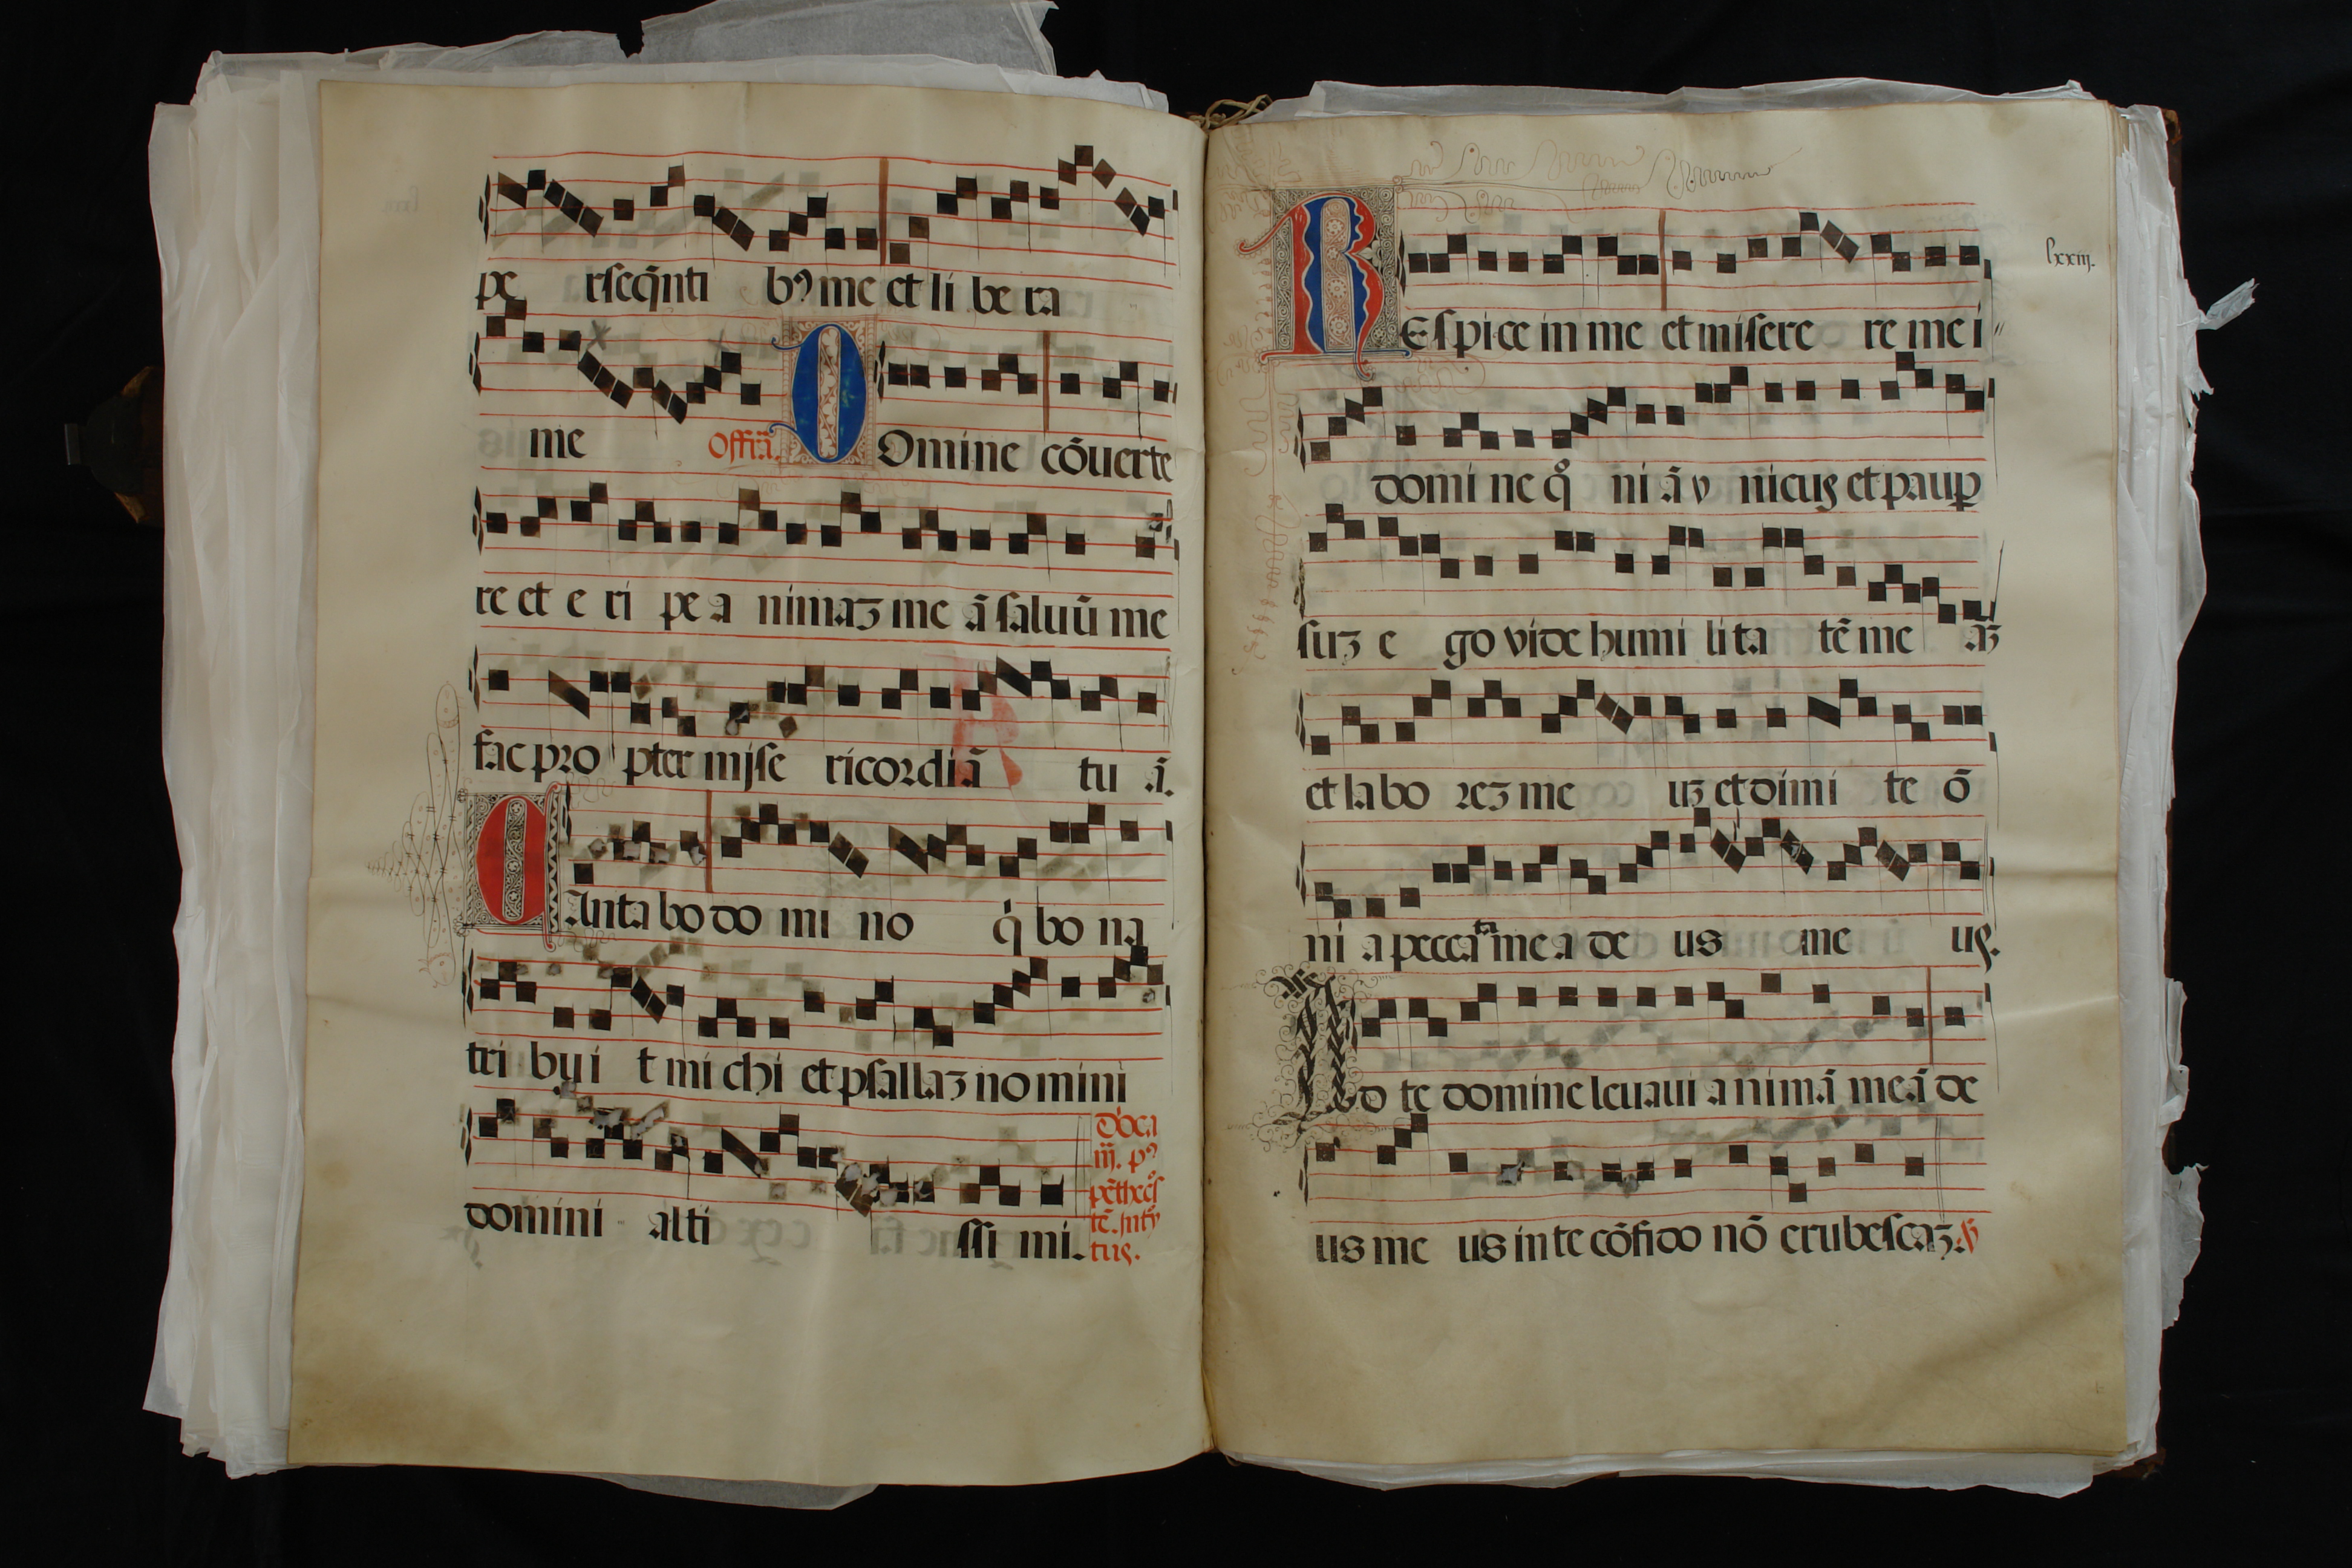 pe rseq̄nti bꝰ me et li be ra
me Offr̄a. D Omine cōuerte
re et e ri pe a nimaʒ me ā saluū me
fac pro pter mise ricordiā tu ā.
C Anta bo do mi no q̇ bo na
tri bu i t mi chi et psallaʒ no mini
domini alti ssi mi.
d̄oca
iij. pꝰ
pētheco᷒
tē. Intro᷒
tus.
lxxiij.
R Espice in me et misere re me i
domi ne qo ni ā v nicus et paup̲
suʒ e go vide humi li ta tē me aʒ
et la bo reʒ me uʒ et dimi te ō
ni a pecca ta me a de us me us.
A D te domine leuaui a nimā meā de
us me us in te cōfido nō erubescaʒ. ℣